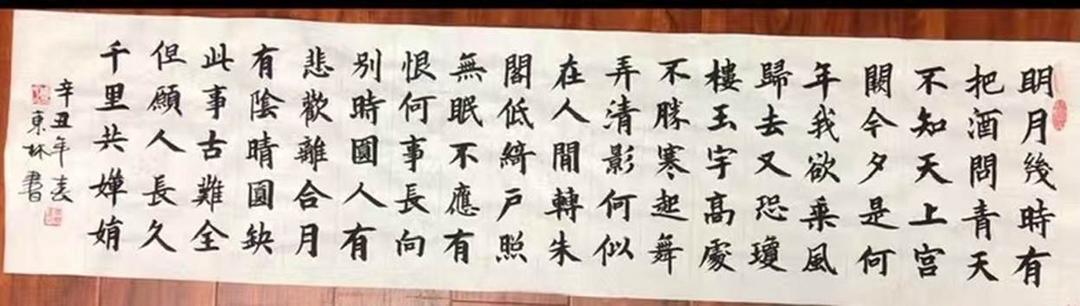 明月幾時有
把酒問青天
不知天上宮
闕今夕是何
年我欲乘風
歸去又恐瓊
樓玉宇高處
不勝寒起舞
弄清影何似
在人間轉朱
閣低綺戶照
無眠不應有
恨何事長向
別時圓人有
悲歡離合月
有陰晴圓缺
此事古難全
但願人長久
千里共嬋娟
辛丑年麦
東林書